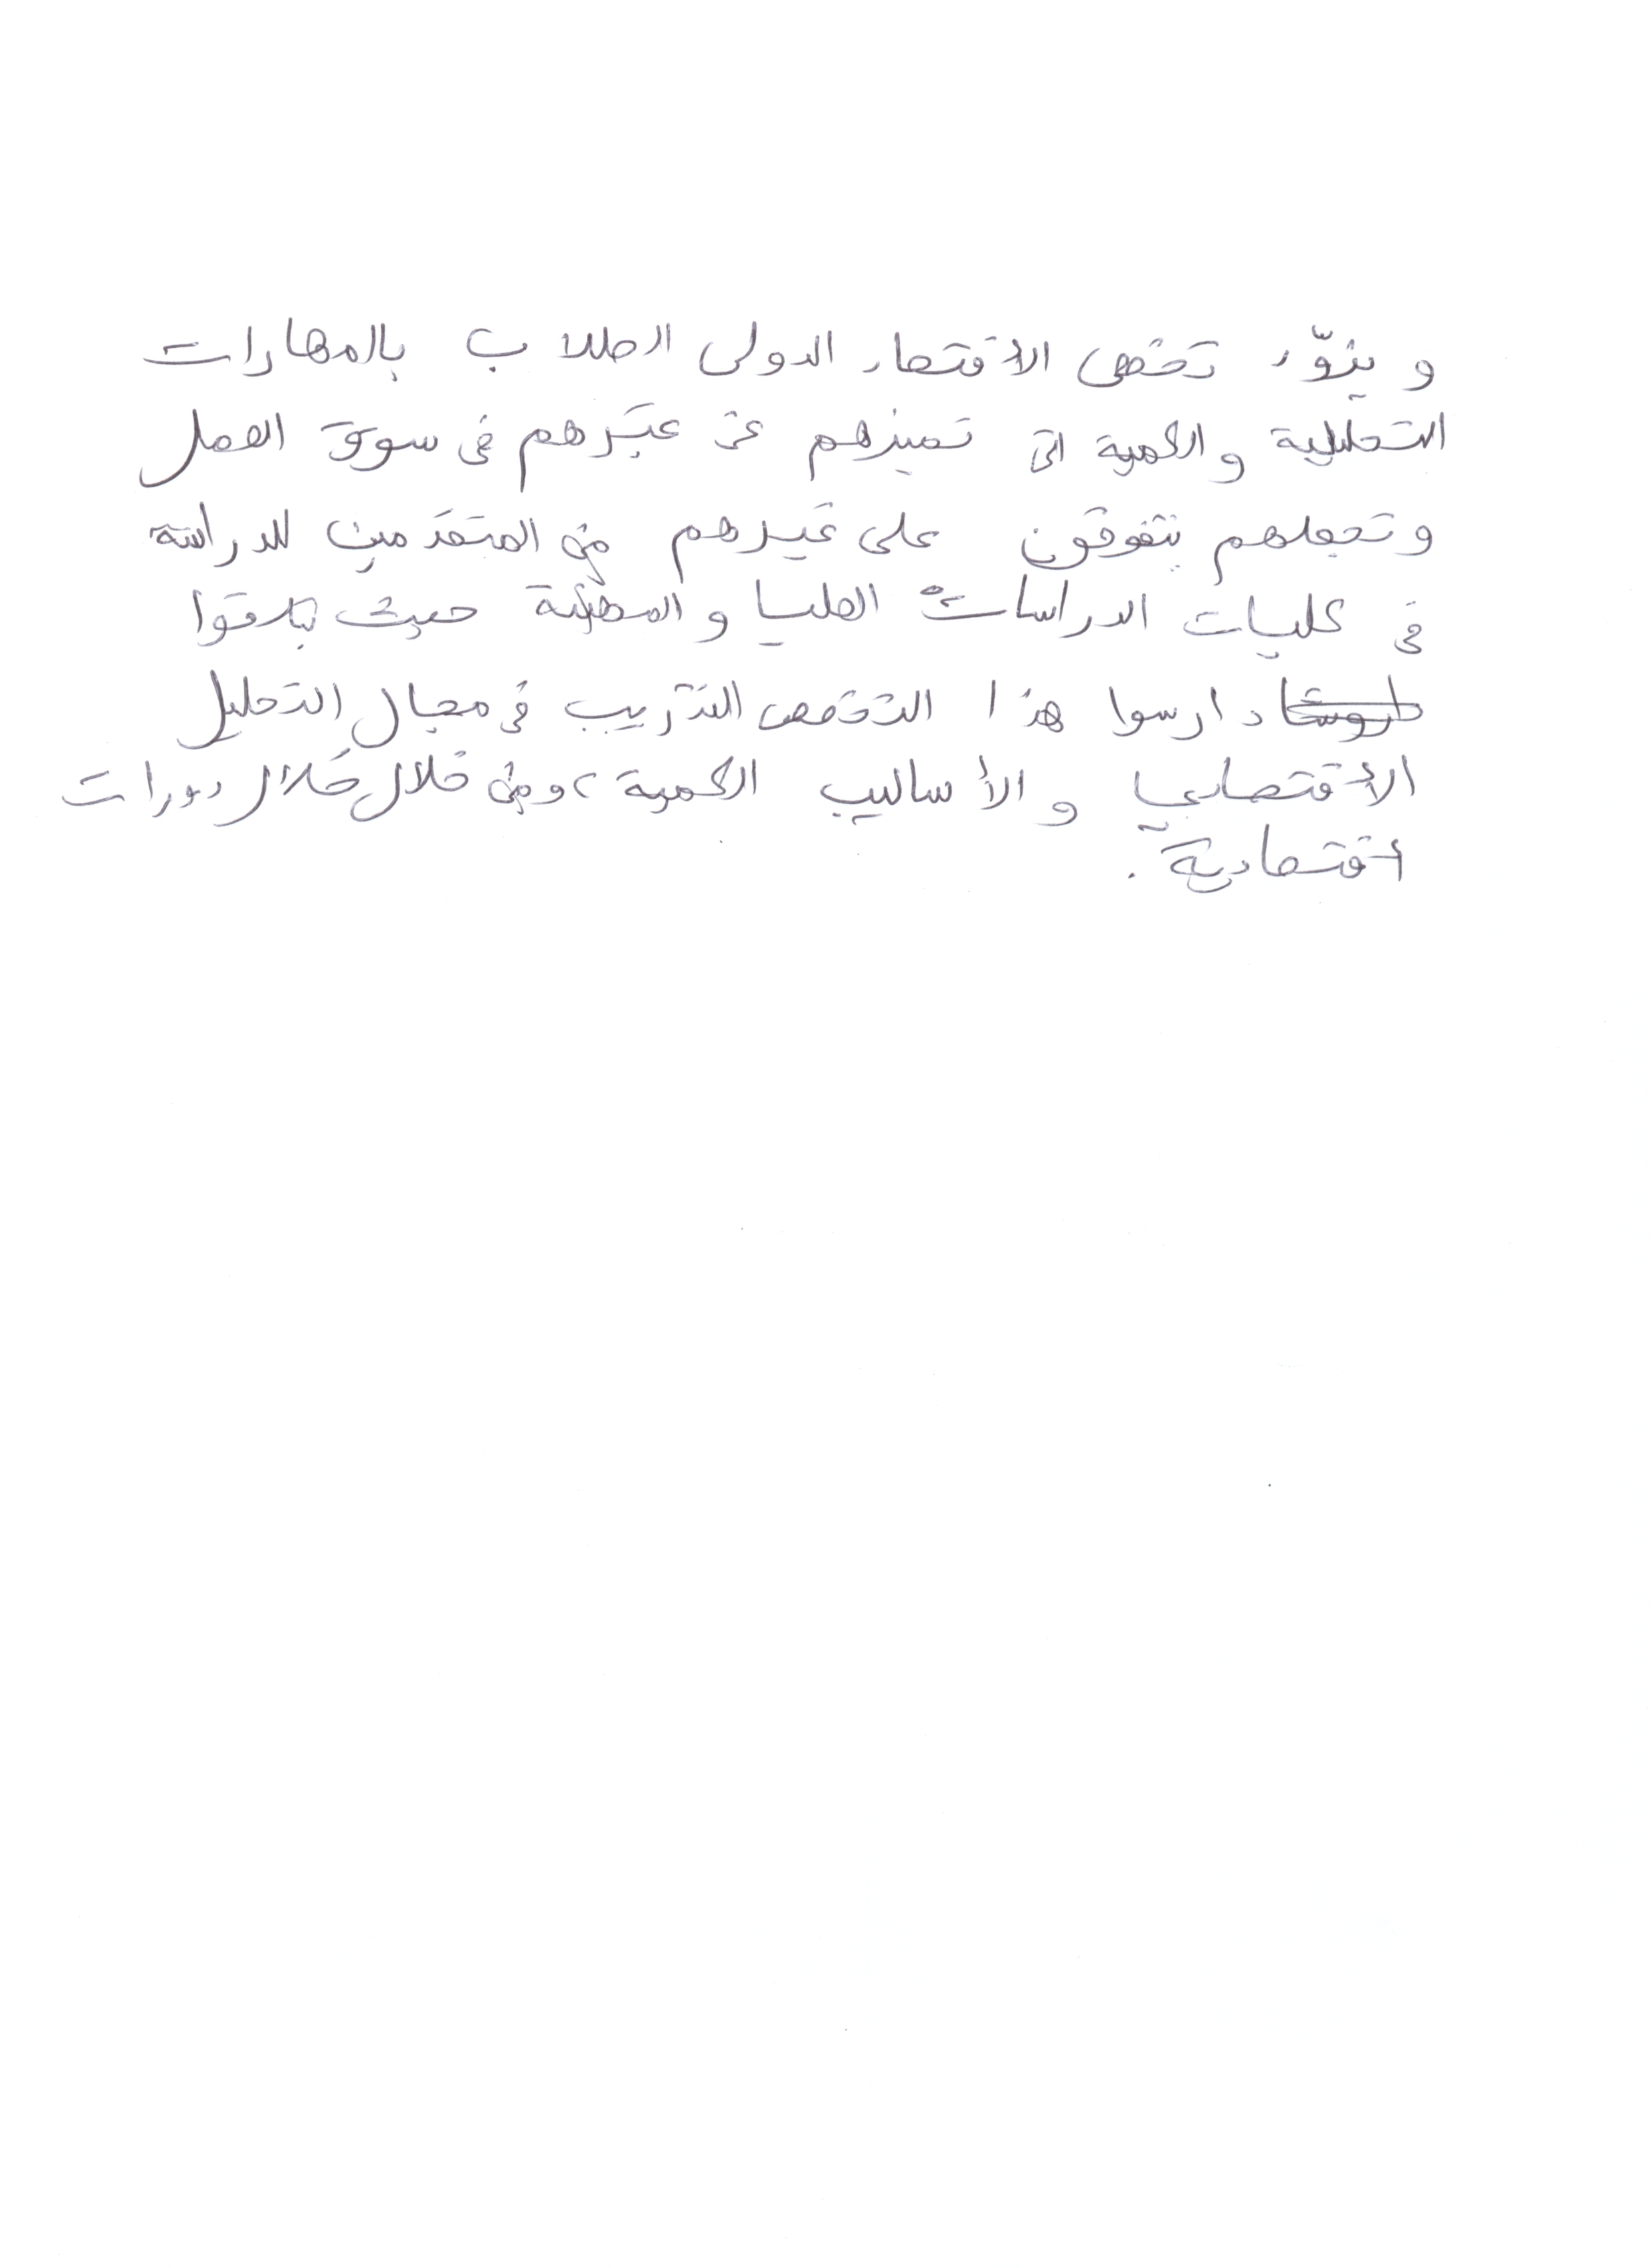 و يزوّد تخصص الأقتصاد الدولى الطلاب بالمهارات
التحليلية والكمية التى تميزهم عن غيرهم فى سوق العمل
وتجعلهم يتفوقون على غيرهم من المتقدمين للدراسة
فى كليات الدراسات العليا و المهنية حيث يتلقوا
دارسوا هذا التخصص التدريب فى مجال التحليل
الأقتصادي والأساليب الكمية، ومن خلال خلال دورات
أقتصادية.